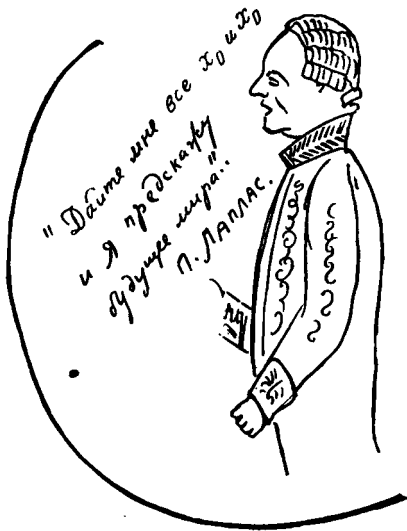 "Дайте мне все x₀ и x₀
и я предскажу
будущее мира".
П. ЛАПЛАС.